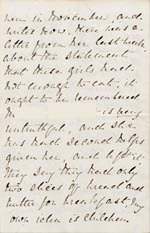 her in November, and
writes now. There was a
letter from her last week
about the statement
that these girls had
not enough to eat, it
ought to be remembered
M is very
untruthful, and she
has had second helps
given her, and left it.
They say they had only
two slices of bread and
butter for breakfast, my
own idea is children